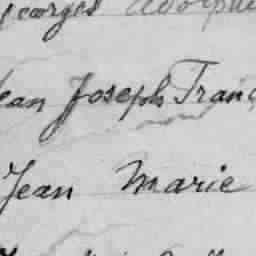 Georges Adolphe
Jean Joseph Franç
Jean Marie